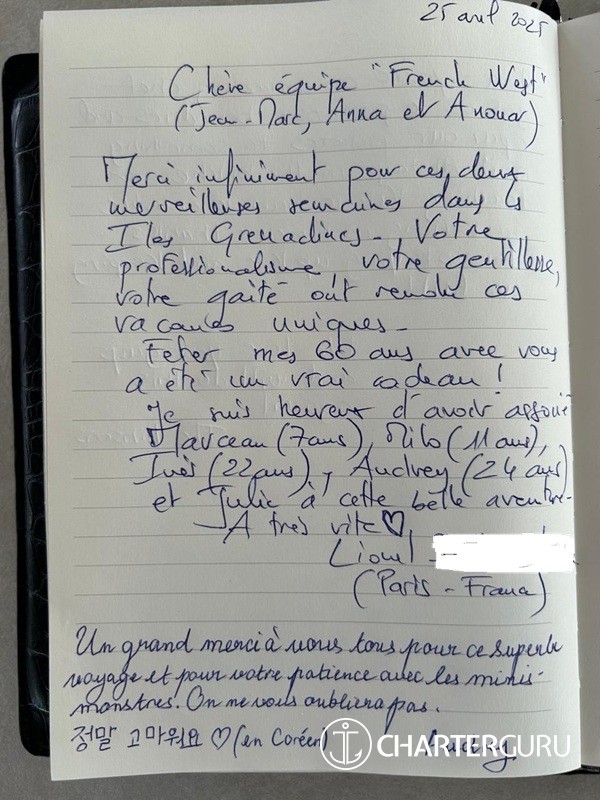 25 avril 2025
Chère équipe "French West"
(Jean-Marc, Anna et Anouar)
Merci infiniment pour ces deux
merveilleuses semaines dans les
Iles Grenadines. Votre
professionalisme, votre gentillesse,
votre gaité ont rendu ces
vacances uniques.
Fêter mes 60 ans avec vous
a été un vrai cadeau !
Je suis heureux d'avoir associé
Marceau (7ans), Milo (11 ans),
Inès (22 ans), Audrey (24 ans)
et Julie à cette belle aventure.
A très vite ♡,
Lionel
(Paris - France)
Un grand merci à vous tous pour ce superbe
voyage et pour votre patience avec les minis-
monstres. On ne vous oubliera pas.
정말 고마워요 ♡ (en Coréen) Audrey
CHARTERGURU